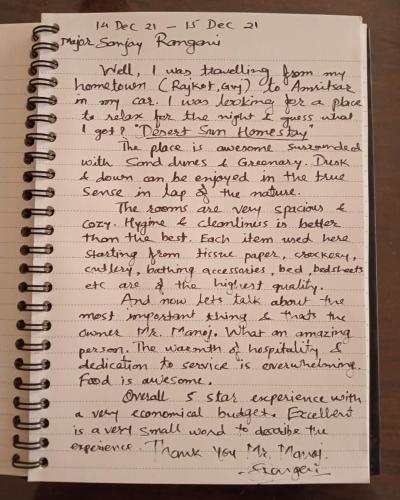 14 Dec 21 - 15 Dec 21
Major Sanjay Rangani
Well, I was travelling from my
hometown (Rajkot, Guj) to Amritsar
in my car. I was looking for a place
to relax for the night & guess what
I got? "Desert Sun Homestay"
The place is awesome surrounded
with Sand dunes & Greenary. Dusk
& down can be enjoyed in the true
Sense in lap of the nature.
The rooms are very spacious &
cozy. Hygine & cleanliness is better
than the best. Each item used here
starting from tissue paper, crockery,
cutlery, bathing accessories, bed, bedsheets
etc are of the highest quality.
And now lets talk about the
most important thing & thats the
owner Mr. Manoj. What an amazing
person. The warmth of hospitality &
dedication to service is overwhelming.
Food is awesome.
Overall 5 star experience with
a very economical budget. Excellent
is a very small word to describe the
experience. Thank you Mr. Manoj.